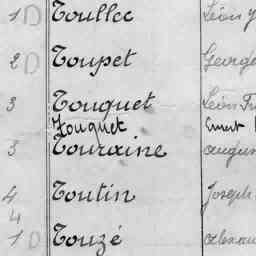 1 D Toullec Léon
2 D Toupet George
3 Touquet Léon Fr
Touquet Ernest
3 Touraine august
4 Toutin Joseph
4
1 D Touzé